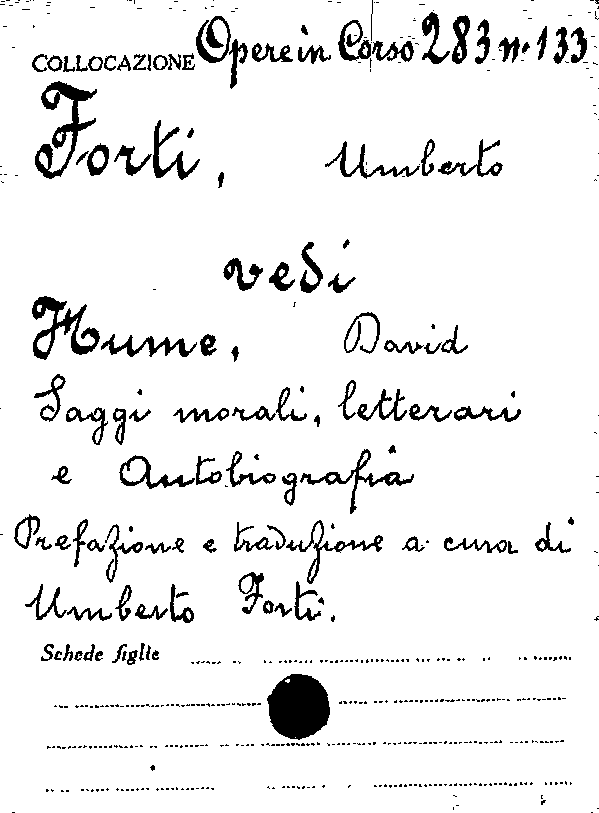 COLLOCAZIONE Opere in Corso 283 n. 133
Forti, Umberto
vedi
Hume, David
Saggi morali, letterari
e Autobiografia
Prefazione e traduzione a cura di
Umberto Forti.
Schede figlie